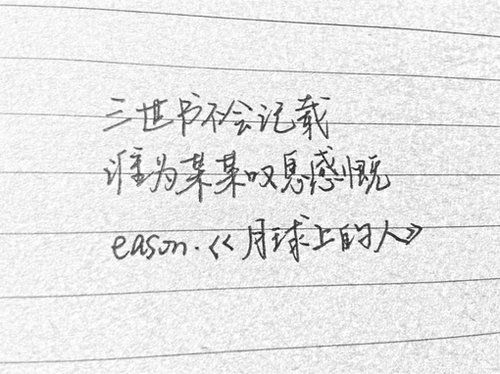 三世书不会记载
谁为某某叹息感慨
eason.《月球上的人》